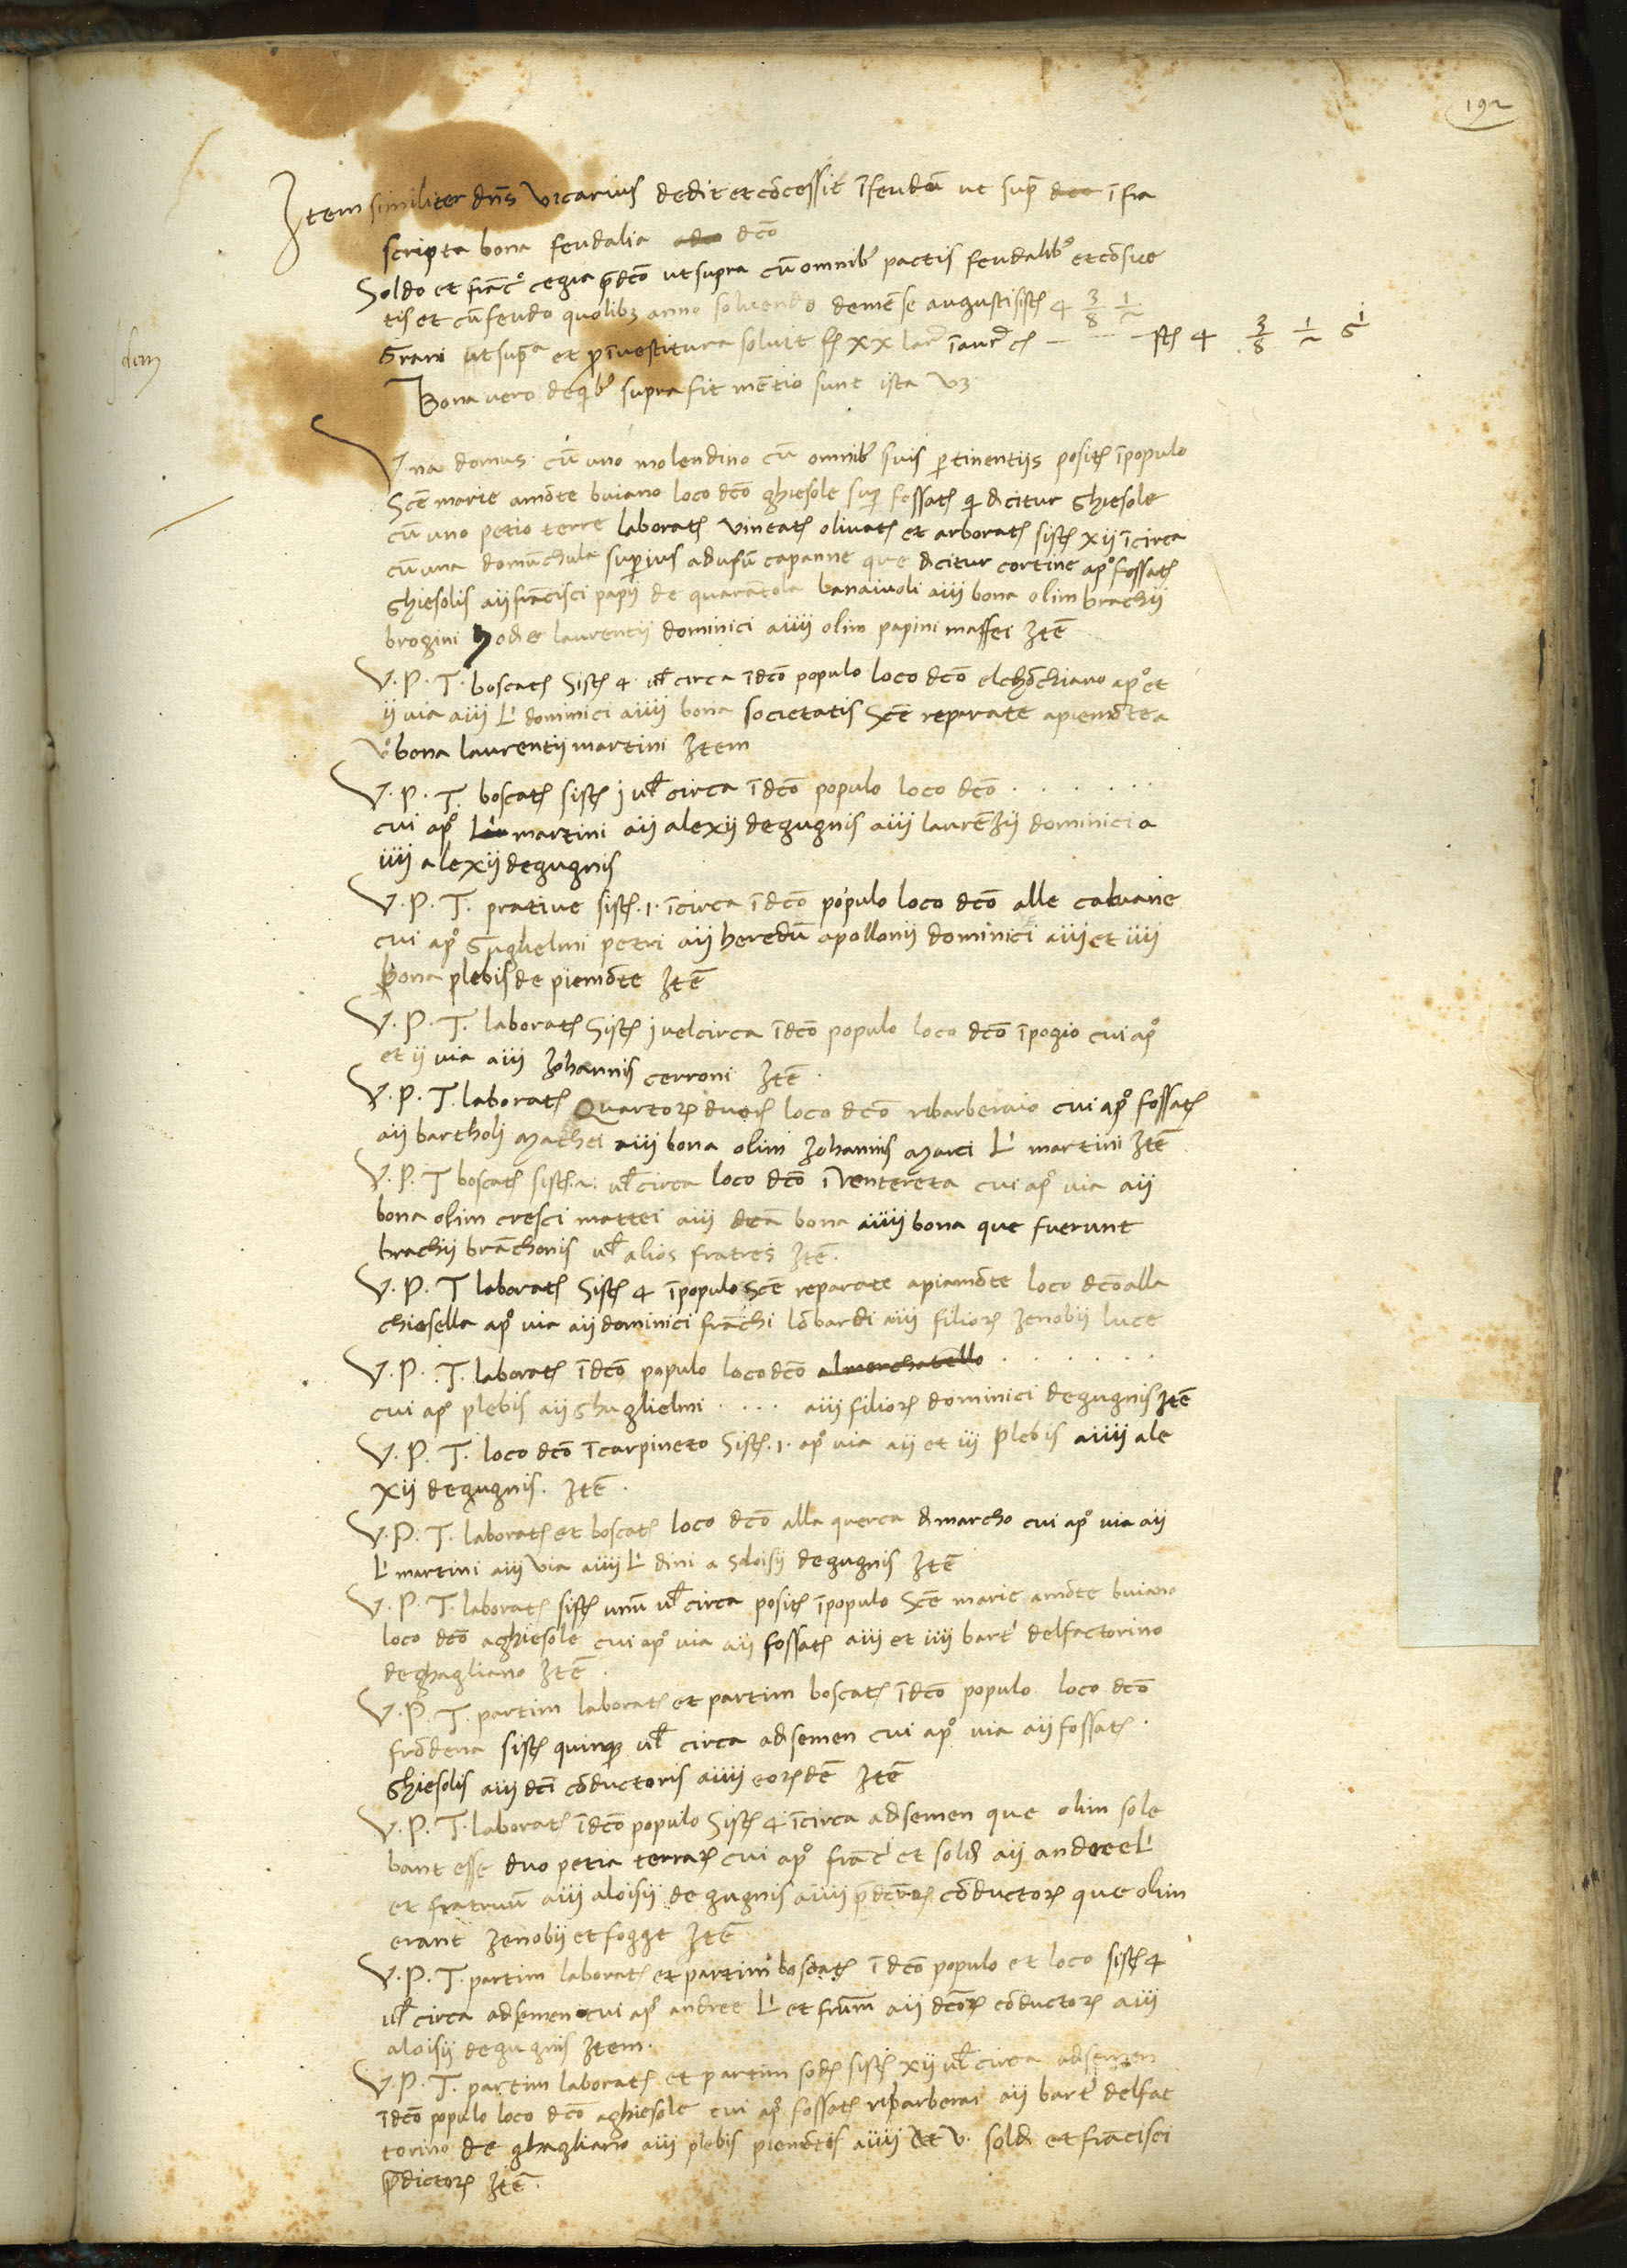 192
Item similiter dn̄s vicarius dedit et cōcessit ī feudū ut supͣ dco īfra
scripta bona feudalia ado dc̄o
Soldo et frācͦ cegia p̄dc̄o ut supra cū omnibꝰ pactis feudalibꝰ et cōsue
tis et cū feudo quolibꝫ anno solvendo de mēse augusti sistꝭ 4 3/8 1/2
Grani ut supͣ et p īvestitura soluit xx
stꝭ 4 3/8 1/2 1/6
Bona uero de qͥbꝰ supra fit mētio sunt ista vꝫ
Idem
Una domus cū uno molendino cū omnibꝰ suis ptinentijs positꝭ ī populo
Scē marie amōte buiano loco dc̄o ghiesole sup fossatꝭ qͥ dicitur ghiesole
cū uno petio terre laboratꝭ vineatꝭ olivatꝭ et arboratꝭ sistꝭ xij ī circa
cū una domūchula supius ad usū capanne que dicitur cortine apͦ fossatꝭ
ghiesolis aij frācisci papij de quarātola banaiuoli aiij bona olim brachij
brogini hodie laurentij dominici aiiij olim papini maffei Itē
V. P. T. boscatꝭ Sistꝭ 4 ul̄ circa ī dc̄o populo loco dc̄o elchōchiano apͦ et
ij via aiij L' dominici aiiij bona societatis Scē reparate apiemōte a
vͦ bona laurentij martini Item
V. P. T. boscatꝭ sistꝭ j ul̄ circa ī dc̄o populo loco dc̄o . . . . . .
cui apͦ martini aij alexij degugnis aiij laurēzij dominici a
iiij alexij degugnis
V. P. T. prative sistꝭ .1. ī circa ī dc̄o populo loco dc̄o alle cavane
cui apͦ Guglielmi petri aij heredū apollonij dominici aiij et iiij
bona plebis de piemōte Itē
V. P. T. laboratꝭ Sistꝭ j vel circa ī dc̄o populo loco dc̄o ī pogio cui apͦ
et ij via aiij Johannis cerroni Itē .
V. P. T. laboratꝭ Quartorꝝ duorꝝ loco dc̄o ribarberaio cui apͦ fossatꝭ
aij bartholj mathei aiij bona olim Johannis marci L' martini Itē
V. P. T boscatꝭ sistꝭ .2. ul̄ circa loco dc̄o ī ventereta cui apͦ via aij
bona olim cresci mattei aiij dc̄a bona aiiij bona que fuerunt
brachij brāchonis ul̄ alios fratres Itē .
V. P. T laboratꝭ Sistꝭ 4 ī populo Scē reparate apiamōte loco dc̄o alla
chiesella apͦ via aij dominici frāchi lōbardi aiij filiorꝝ Zenobij luce
V. P. T. laboratꝭ ī dc̄o populo loco dc̄o almerchatello . . . . . .
cui apͦ plebis aij ghuglielmi . . . . aiij filiorꝝ dominici degugnis Itē
V. P. T. loco dc̄o ī carpineto Sistꝭ .1. apͦ via aij et iij plebis aiiij ale
xij degugnis . Itē .
V. P. T. laboratꝭ et boscatꝭ loco dc̄o alla querca di marcho cui apͦ via aij
L' martini aiij via aiiij L' dini a 5 aloisij degugnis Itē
V. P. T. laboratꝭ sistꝭ unū ul̄ circa positꝭ ī populo Scē marie amōte buiano
loco dc̄o aghiesole cui apͦ via aij fossatꝭ aiij et iiij bart' delfactorino
deghagliano Itē .
V. P. T. partim laboratꝭ et partim boscatꝭ ī dc̄o populo loco dc̄o
frōdena sistꝭ quinqꝫ ul̄ circa ad semen cui apͦ via aij fossatꝭ .
Ghiesolis aiij dc̄i cōductoris aiiij eorꝝdē Itē
V. P. T. laboratꝭ ī dc̄o populo Sistꝭ 4 ī circa ad semen que olim sole
bant esse duo petia terrarꝝ cui apͦ frāc' et soldi aij andree L'
et fratruū aiij aloisij degugnis aiiij p̄dc̄orꝝ cōductorꝝ que olim
erant Zenobij et Itē
V. P. T. partim laboratꝭ et partim boscatꝭ ī dc̄o populo et loco sistꝭ 4
ul̄ circa ad semen cui apͦ andree L' et frūm aij dc̄orꝝ cōductorꝝ aiij
aloisij degugnis Item .
V. P. T. partim laboratꝭ et partim sodꝭ sistꝭ xij ul̄ circa ad semen
ī dc̄o populo loco dc̄o aghiesole cui apͦ fossatꝭ ribarberai aij bart' delfac
torino de ghagliano aiij plebis piemōtis aiiij et v. soldi et frācisci
p̄dictorꝝ Itē .